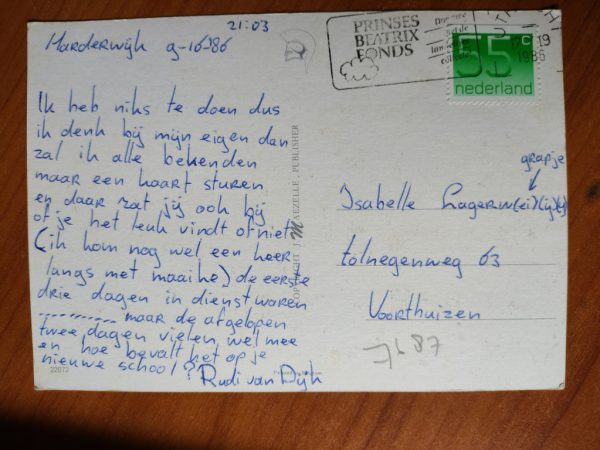 21:03
Harderwijk 9-16-'86
Ik heb niks te doen dus
ik denk bij mijn eigen dan
zal ik alle bekenden
maar een kaart sturen
en daar zat jij ook bij
of je het leuk vindt of niet
(ik kom nog wel een keer
langs met maaike) de eerste
drie dagen in dienst waren
............ maar de afgelopen
twee dagen vielen wel mee
en hoe bevalt het op je
nieuwe school?
Rudi van Dijk
22072
COPYRIGHT MAEZELLE - PUBLISHER
PRINSES
BEATRIX
FONDS
1986
19
55c
nederland
grapje
Isabelle Lagerw(ei)(ij)(y)
tolnegenweg 63
Voorthuizen